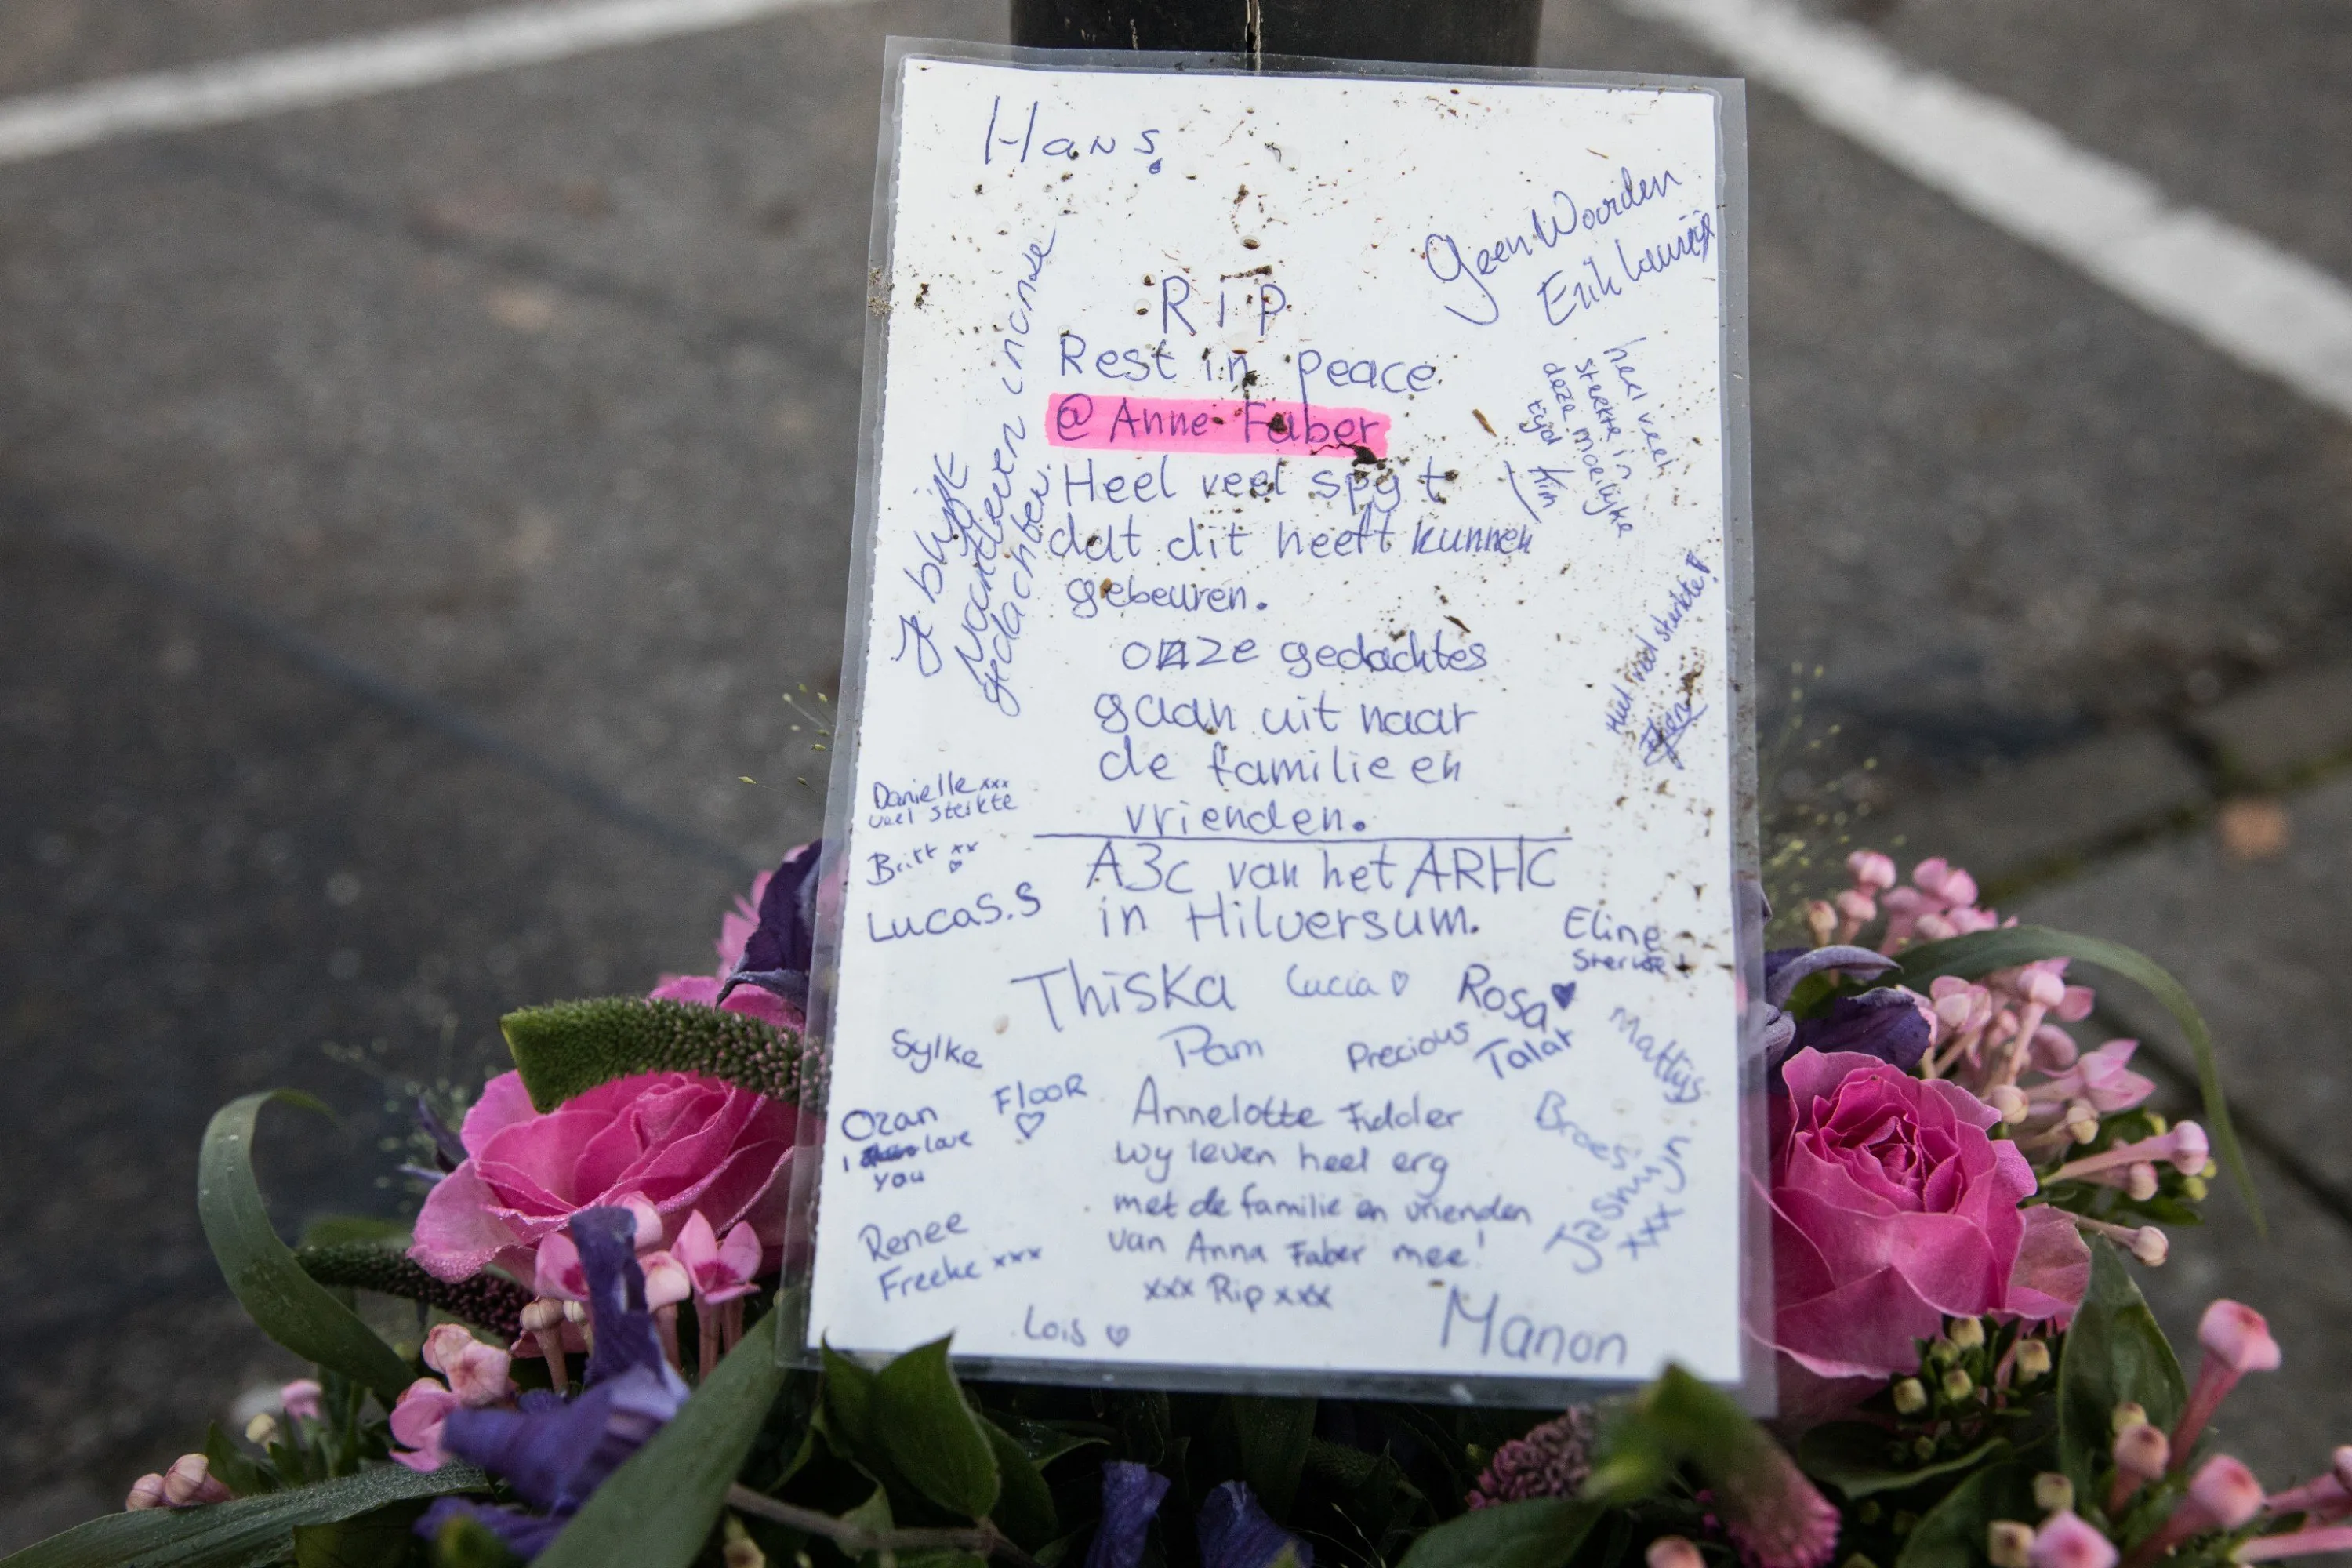 Hans.
Geen Woorden
Erik
RiP
Rest in peace
@ Anne Faber
Heel veel spyt
dat dit heeft kunnen
gebeuren.
onze gedachtes
gaan uit naar
de familie en
vrienden.
A3c van het ARHC
in Hilversum.
Je blijft
voortleven in onze
gedachten.
heel veel
sterkte in
deze moeilijke
tijd Kim
Heel veel sterkte!
Danielle xxx
veel sterkte
Britt xx
♡
LucaS.S
Eline
Sterkte!
Thiska
Lucia ♡
Rosa ♥
Sylke
Pam
Precious
Talat
Mattijs
Ozan
I love
you
FlooR
♡
Annelotte Fidder
wy leven heel erg
met de familie en vrienden
van Anna Faber mee!
xxx Rip xxx
Broes
Jasmijn.
xxx
Renee
Freeke xxx
Lois ♡
Manon